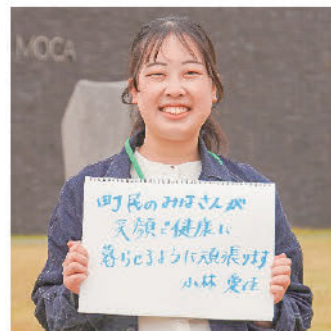 MOCA
町民のみなさんが
笑顔で健康に
暮らせるように頑張ります
小林